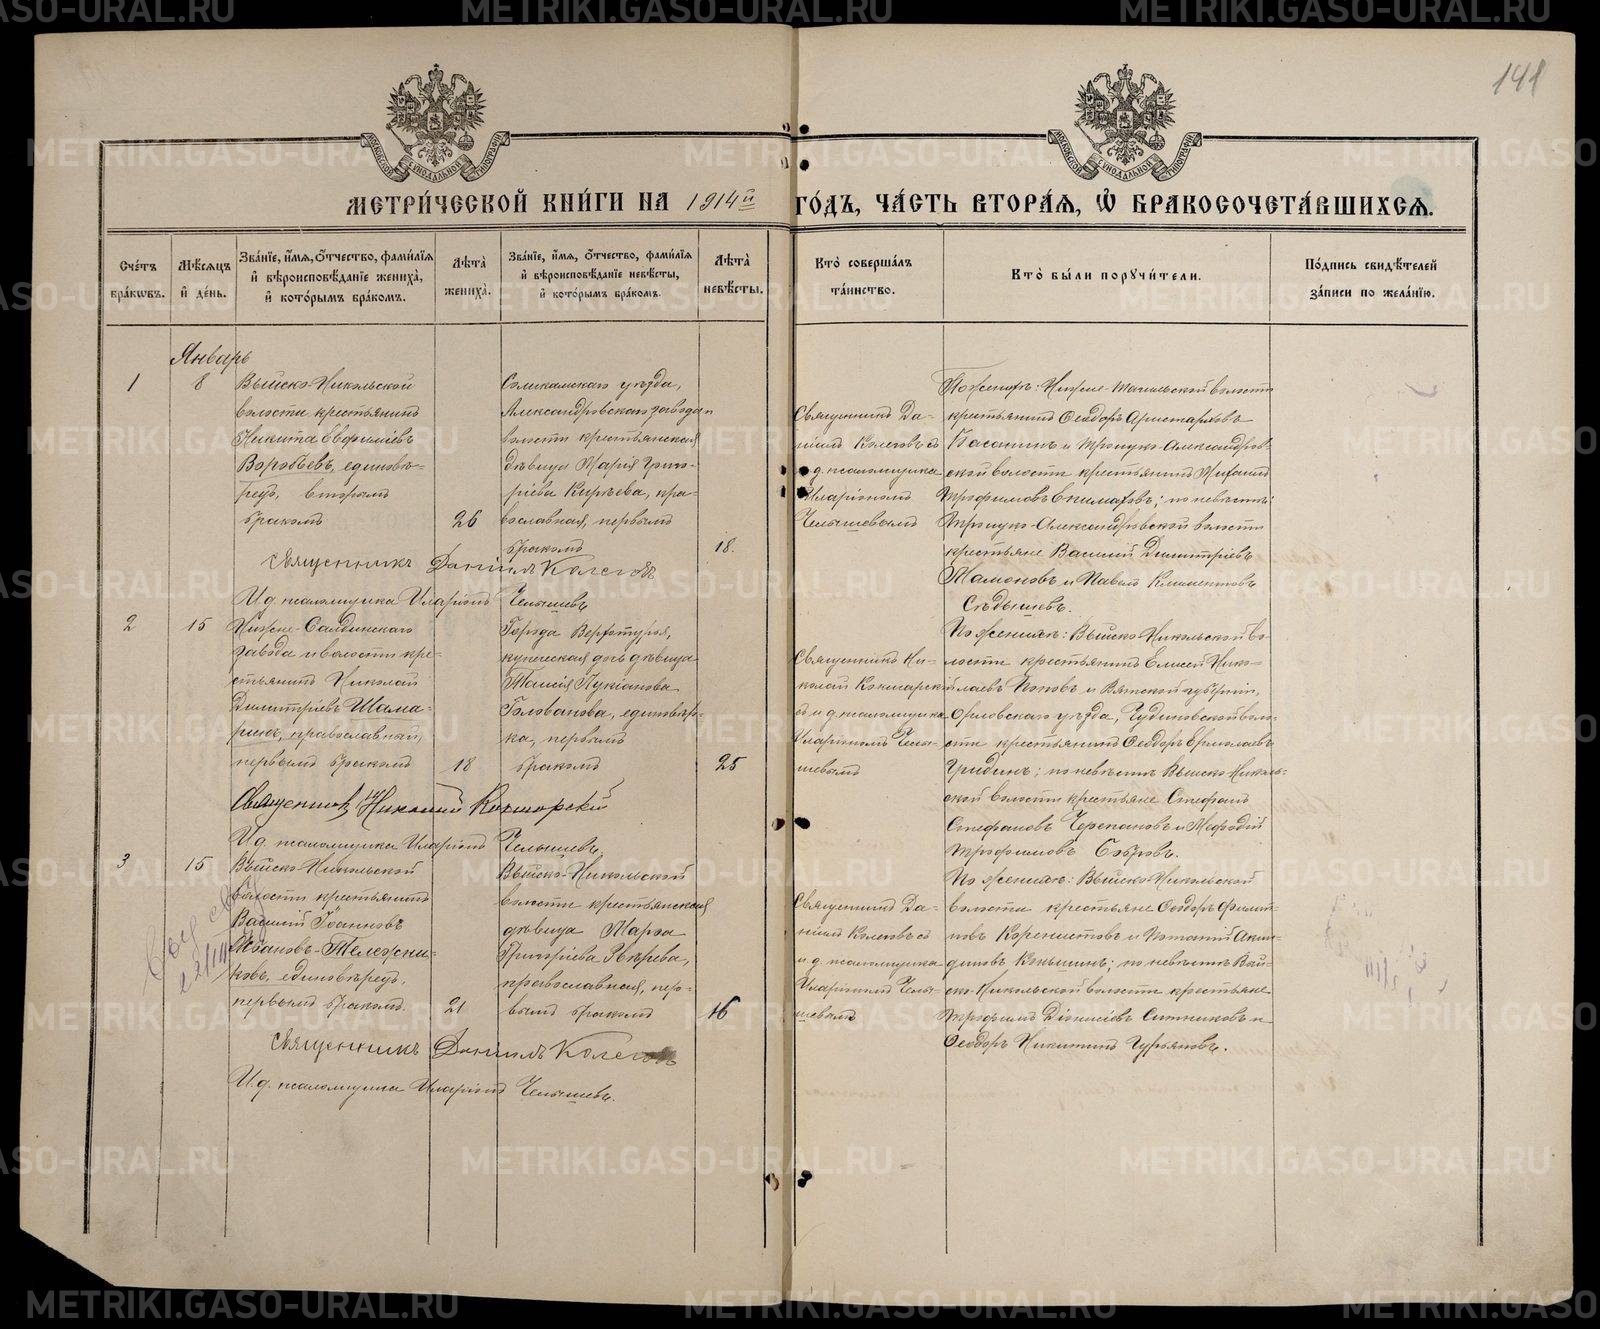 141
МОСКОВСКОЙ СѴНОДАЛЬНОЙ ТИПОГРАФІИ
МОСКОВСКОЙ СѴНОДАЛЬНОЙ ТИПОГРАФІИ
МЕТРИ́ЧЕСКОЙ КНИ́ГИ НА 1914й ГО́ДЪ, ЧА́СТЬ ВТОРА́Я, Ѽ БРАКОСОЧЕТА́ВШИХСЯ.
Сче́тъ бра́кѡвъ.
Мѣ́сяцъ и҆ де́нь.
Зва́нїе, и҆́мя, ѻ҆́тчество, фами́лїя и҆ вѣроисповѣ́данїе жениха̀, и҆ кото́рымъ бра́комъ.
Лѣ́та жениха̀.
Зва́нїе, и҆́мя, ѻ҆́тчество, фами́лїя и҆ вѣроисповѣ́данїе невѣ́сты, и҆ кото́рымъ бра́комъ.
Лѣ́та невѣ́сты.
Кто̀ соверша́лъ та́инство.
Кто̀ бы́ли порꙋчи́тели.
По́дпись свидѣ́телей за́писи по жела́нїю.
Январь
1
8
Выйско-Никольской
волости крестьянинъ
Никита Евфиміевъ
Воробьевъ, единовѣ-
рецъ, вторымъ
бракомъ
26
Соликамскаго уѣзда,
Александровскаго завода и
волости крестьянская
дѣвица Марія Григо-
ріева Кирѣева, пра-
вославная, первымъ
бракомъ
18.
Священникъ Да-
ніилъ Колеговъ съ
и. д. псаломщика
Иларіономъ
Челышевымъ
По женихѣ: Нижне-Тагильской волости
крестьянинъ Ѳеодоръ Аристарховъ
Басанинъ и Троицко-Александров-
ской волости крестьянинъ Михаилъ
Трофимовъ; по невѣстѣ:
Троицко-Александровской волости
крестьяне Василій Димитріевъ
Мамоновъ и Павелъ Климентовъ
Сѣдышевъ.
Священникъ Даніилъ Колеговъ
И. д. псаломщика Иларіонъ Челышевъ
2
15
Нижне-Салдинскаго
завода и волости кре-
стьянинъ Николай
Димитріевъ Шама-
ринъ, православный,
первымъ бракомъ
18
Города Верхотурья,
купеческая дочь дѣвица
Таисія Лукіанова
Голованова, единовѣр-
ка, первымъ
бракомъ
25
Священникъ Ни-
колай Кокшарскій
съ и. д. псаломщика
Иларіономъ Челы-
шевымъ
По женихѣ: Выйско-Никольской во-
лости крестьянинъ Елисей Нико-
лаевъ Поповъ и Вятской губерніи,
Орловскаго уѣзда, Чудиновской воло-
сти крестьянинъ Ѳеодоръ Ермолаевъ
Гридинъ; по невѣстѣ Выйско-Николь-
ской волости крестьяне Стефанъ
Стефановъ Черепановъ и Меѳодій
Трофимовъ Бобровъ.
Священникъ Николай Кокшарскій
И. д. псаломщика Иларіонъ Челышевъ.
3
15
Выйско-Никольской
волости крестьянинъ
Василій Іоанновъ
Абановъ-Тележни-
ковъ, единовѣрецъ,
первымъ бракомъ.
21
Выйско-Никольской
волости крестьянская
дѣвица Марѳа
Григоріева Звѣрева,
православная, пер-
вымъ бракомъ
16
Священникъ Да-
ніилъ Колеговъ съ
и. д. псаломщика
Иларіономъ Челы-
шевымъ
По женихѣ: Выйско-Никольской
волости крестьяне Ѳеодоръ Филип-
повъ Коренистовъ и Потапій Акин-
диновъ Коньшинъ; по невѣстѣ Вый-
ско-Никольской волости крестьяне
Трофимъ Діонисіевъ Ситниковъ и
Ѳеодоръ Никитинъ Гурьяновъ.
Священникъ Даніилъ Колеговъ
И. д. псаломщика Иларіонъ Челышевъ.
METRIKI.GASO-URAL.RU